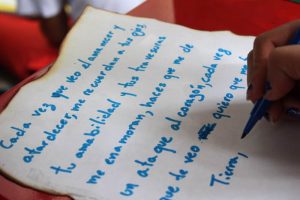 Cada vez que veo el amanecer y
atardecer, me recuerdan a tus ojos
tu amabilidad y tus travesuras
me enamoran, haces que me de
un ataque al corazón, cada vez
que de veo quiero que me
Tierra,